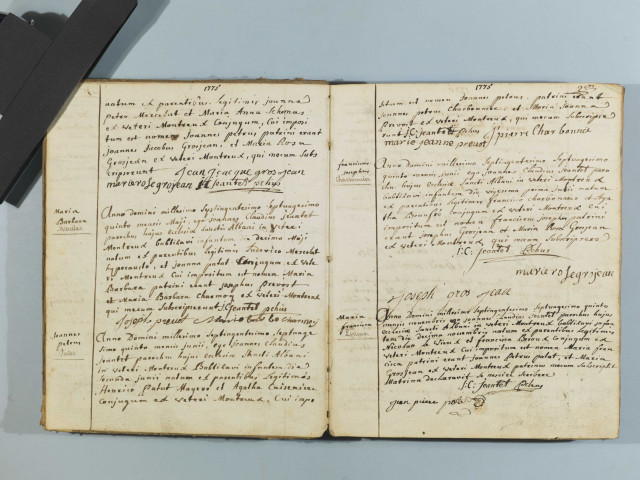 1775
natum ex parentibus legitimis joanne
petro Merzelat et Maria Anna Schemas
ex veteri Montreux Conjugum, Cui imposi
tum est nomen Joannes petrus patrini erant
joannes jacobus Grosjean, et Maria Rosa
Grosjean ex veteri Montreux, qui mecum Subs
cripserunt Jean Jacque grosjean
mararosegrosjean J.C. jeantot pchus
Maria
Barbara
Anno Domini millesimo Septingentesimo Septuagesimo
quinto mensis Maji, ego joannes Claudius jeantot
parochus hujus ecclesiae Sancti Albani in veteri
Montreux Baptizavi infantem decima Maji
natum ex parentibus legitimis Ludovico Mercelat
et joanna patat Conjugum ex vete
ri Montreux Cui impositum est nomen Maria
Barbara patrini erant josephus prevost
et Maria Barbara Charmoy ex veteri Montreux
qui mecum Subscripserunt J.C. jeantot pchus
Joseph prevot
Joannes
petrus
Anno Domini millesimo septingentesimo Septuage
simo quinto mensis junii, ego joannes Claudius
jeantot parochus hujus ecclesiae Sancti Albani
in veteri Montreux Baptizavi infantem die
Secunda junii natum ex parentibus legitimis
Henrico patat Mayero et Agatha Cuisenier
Conjugum ex veteri Montreux, Cui impo
1775
situm est nomen joannes petrus, patrini erant
petrus Charbonnier et Maria joanna
Prevost ex veteri Montreux, qui mecum Subscripse
runt J.C. jeantot pchus pierre Charbonnie
marie jeanne prevost
franciscus
josephus
Anno Domini millesimo Septingentesimo Septuagesimo
quinto mensis junii ego joannes Claudius jeantot paro
chus hujus ecclesiae Sancti Albani in veteri Montreux
Baptizavi infantem die vigesima prima junii natum
ex parentibus legitimis francisco Charbonnier et Aga
tha Conjugum ex veteri Montreux, cui
impositum est nomen franciscus josephus patrini
erant josephus Grosjean et Maria Rosa Grosjean
ex veteri Montreux qui mecum Subscripserunt
J.C. jeantot pchus
mararosegrosjean
Joseph gros jean
Maria
francisca
Anno Domini millesimo Septingentesimo septuagesimo quinto
mensis ego joannes Claudius jeantot parochus hujus
ecclesiae Sancti Albani in veteri Montreux Baptizavi infan
tem die decima natum ex parentibus legitimis
Nicolao et francisca Conjugum ex
veteri Montreux Cui impositum est nomen Maria fran
cisca, patrini erant joannes petrus patat, et Maria
Grosjean ex veteri Montreux patrinus mecum Subscripsit
Matrina declaravit se nescire scribere
J.C. jeantot pchus
jean pierre patat